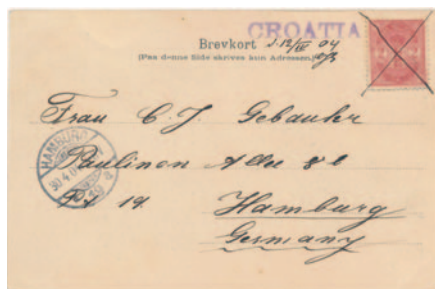 CROATIA
Brevkort d. 12/IV 04
(Paa denne Side skrives kun Adressen.)
Frau C. J. Gebauhr
Paulinen Allee 8b
Pt 19.
Hamburg
Germany
HAMBURG
30.4.0
19 a